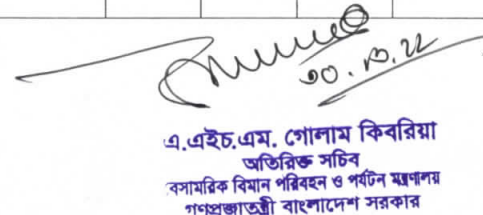 ৩০.১০.২২
এ.এইচ.এম. গোলাম কিবরিয়া
অতিরিক্ত সচিব
বেসামরিক বিমান পরিবহন ও পর্যটন মন্ত্রণালয়
গণপ্রজাতন্ত্রী বাংলাদেশ সরকার